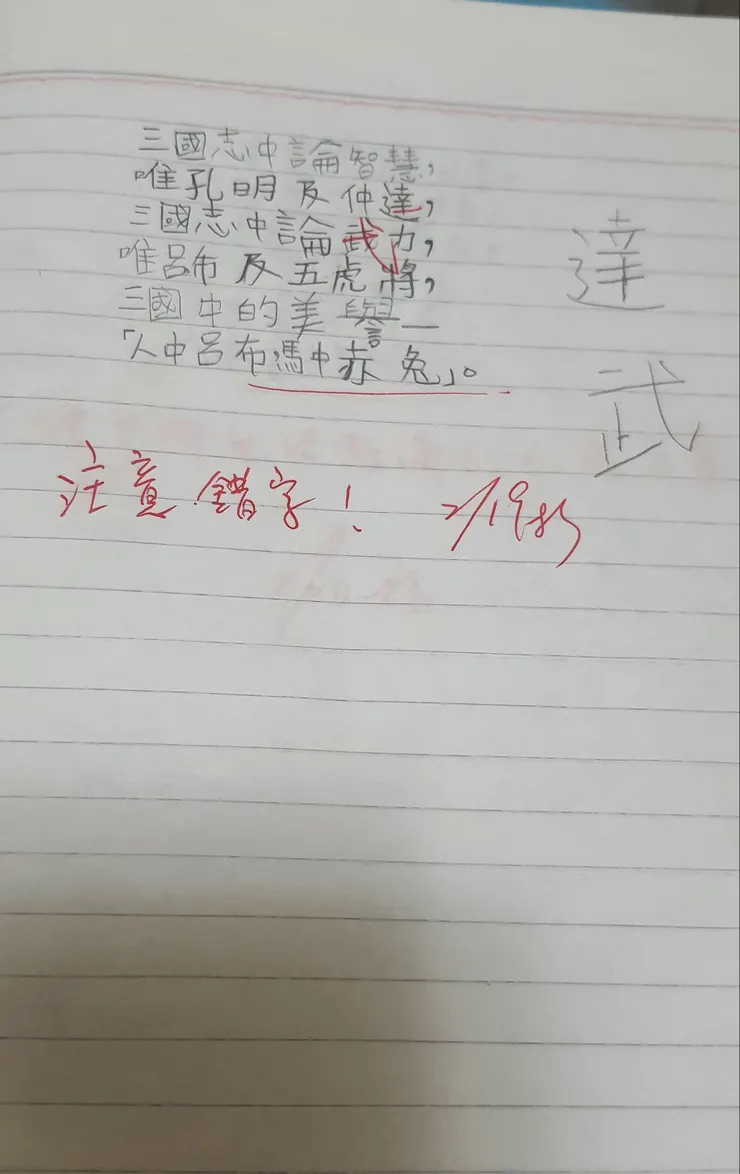 三國志中論智慧，
唯孔明及仲達，
三國志中論武力，
唯呂布及五虎將，
三國中的美譽—
「人中呂布馮中赤兔」。
達
武
注意錯字！ 2/19